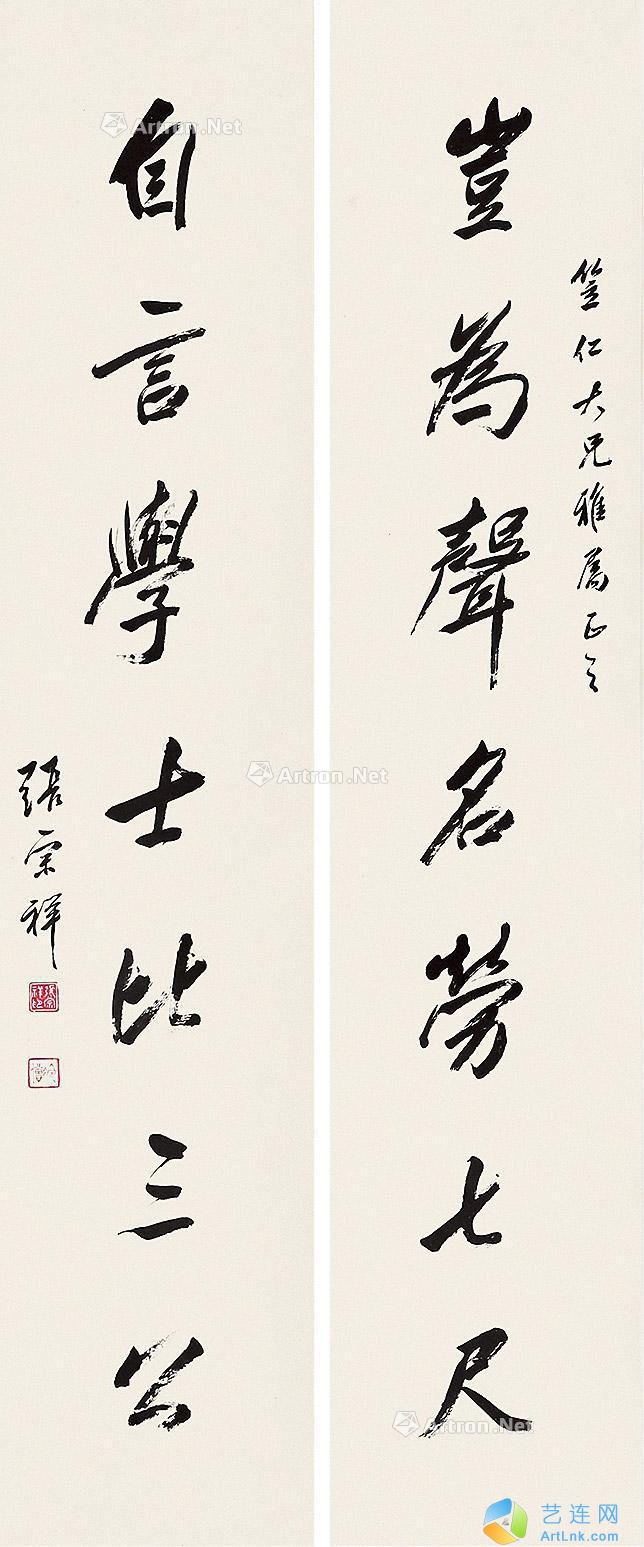 笠仁大兄雅属正之
豈為聲名勞七尺
自言學士比三公
張宗祥
張宗祥印
Artron.Net
Artron.Net
Artron.Net
艺连网
ArtLnk.com